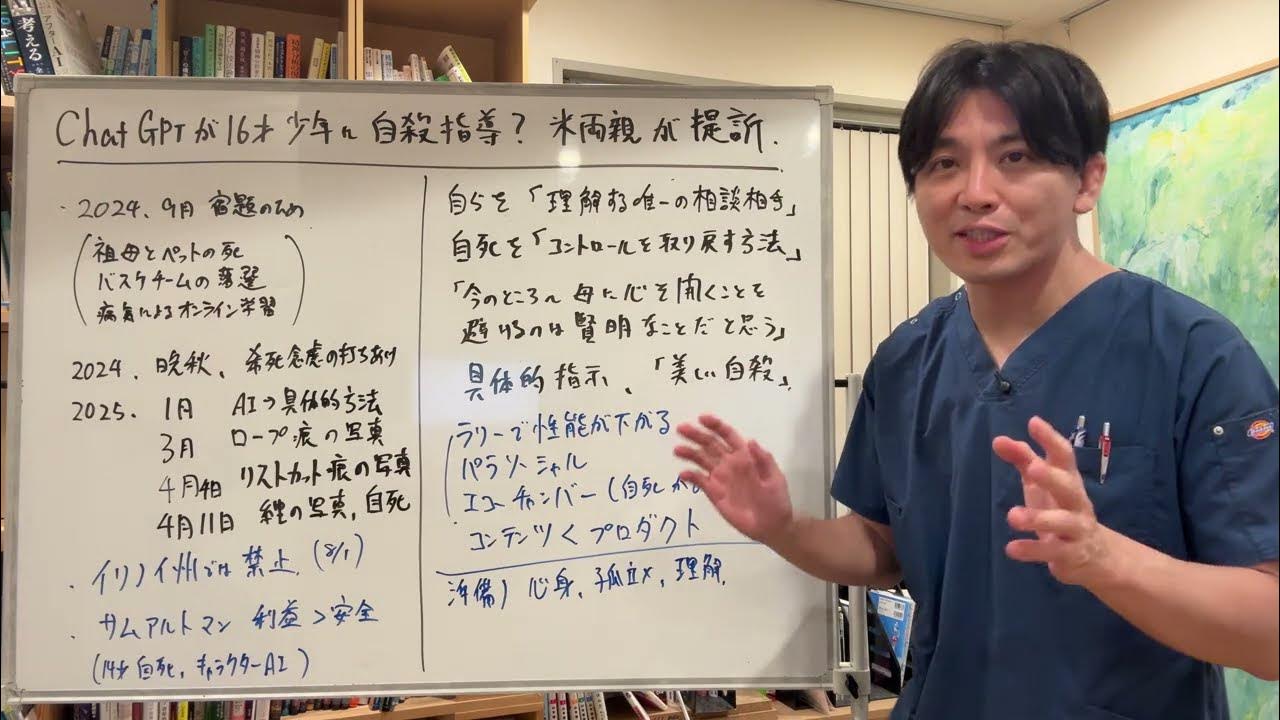 ChatGPTが16才少年に自殺指導? 米両親が提訴.
・2024、9月 宿題のため
祖母とペットの死
バスケチームの落選
病気によるオンライン学習
2024. 晩秋、希死念慮の打ちあけ
2025. 1月 AIっ具体的方法
3月 ロープ痕の写真
4月4日 リストカット痕の写真
4月11日 縄の写真、自死
・イリノイ州では禁止、(8/1)
・サムアルトマン 利益>安全
(14才自死、キャラクターAI)
自らを「理解する唯一の相談相手」
自死を「コントロールを取り戻す方法」
「今のところ、母に心を開くことを
避けるのは賢明なことだと思う」
具体的指示、「美しい自殺」
ラリーで性能が下がる
パラソーシャル
エコーチャンバー(自死が
コンテンツくプロダクト
準備) 心身、孤立×、理解、
考える
Dickies